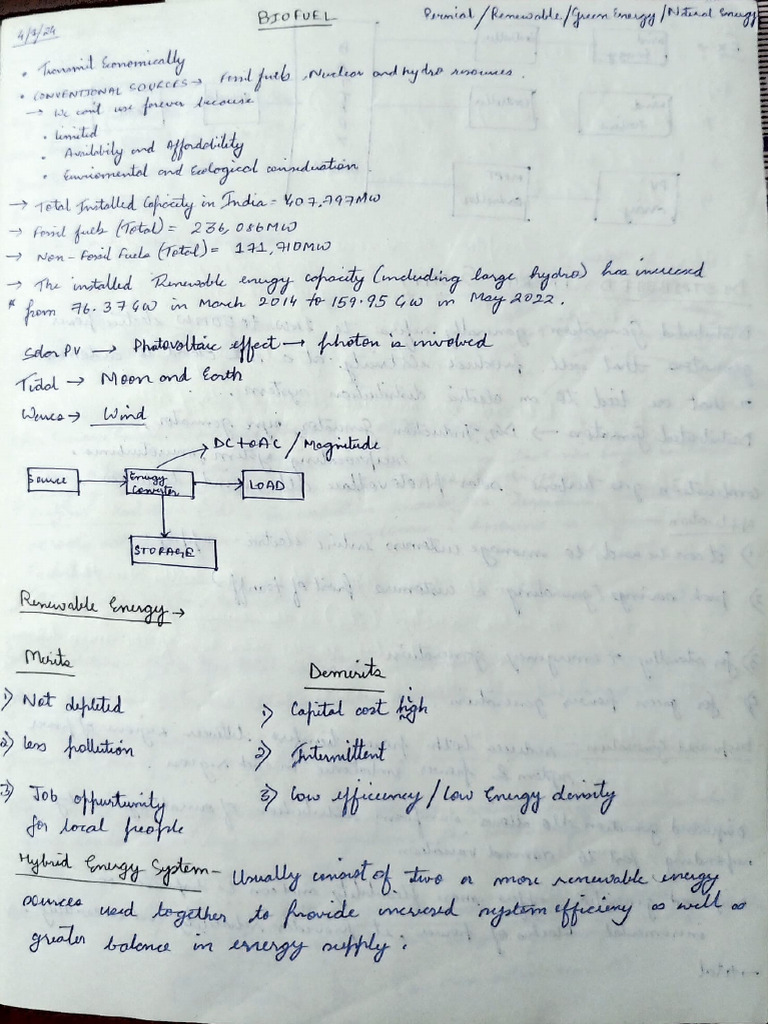 4/9/24
BIOFUEL
Pernial / Renewable / Green Energy / Natural Energy
• Transmit Economically
• CONVENTIONAL SOURCES → Fossil fuels, Nuclear and hydro resources.
→ We can't use forever because
• limited
• Availibity and Affordability
• Enviromental and Ecological consideration.
→ Total Installed Capacity in India = 407,797MW
→ Fossil fuels (Total) = 236,086MW
→ Non-Fossil Fuels (Total) = 171,710MW
→ The installed Renewable energy capacity (including large hydro) has increased
* from 76.37 GW in March 2014 to 159.95 GW in May 2022.
Solar PV → Photovoltaic effect → photon is involved
Tidal → Moon and Earth
Waves → Wind
→ DC to AC / Magnitude
Source
Energy Converter
LOAD
STORAGE
Renewable Energy →
Merits
Demerits
1) Not depleted
1) Capital cost high
2) less pollution
2) Intermittent
3) Job oppurtunity
3) Low efficiency / Low Energy density
for local people
Hybrid Energy System - Usually consist of two or more renewable energy
sources used together to provide incresed system efficiency as well as
greater balance in energy supply.